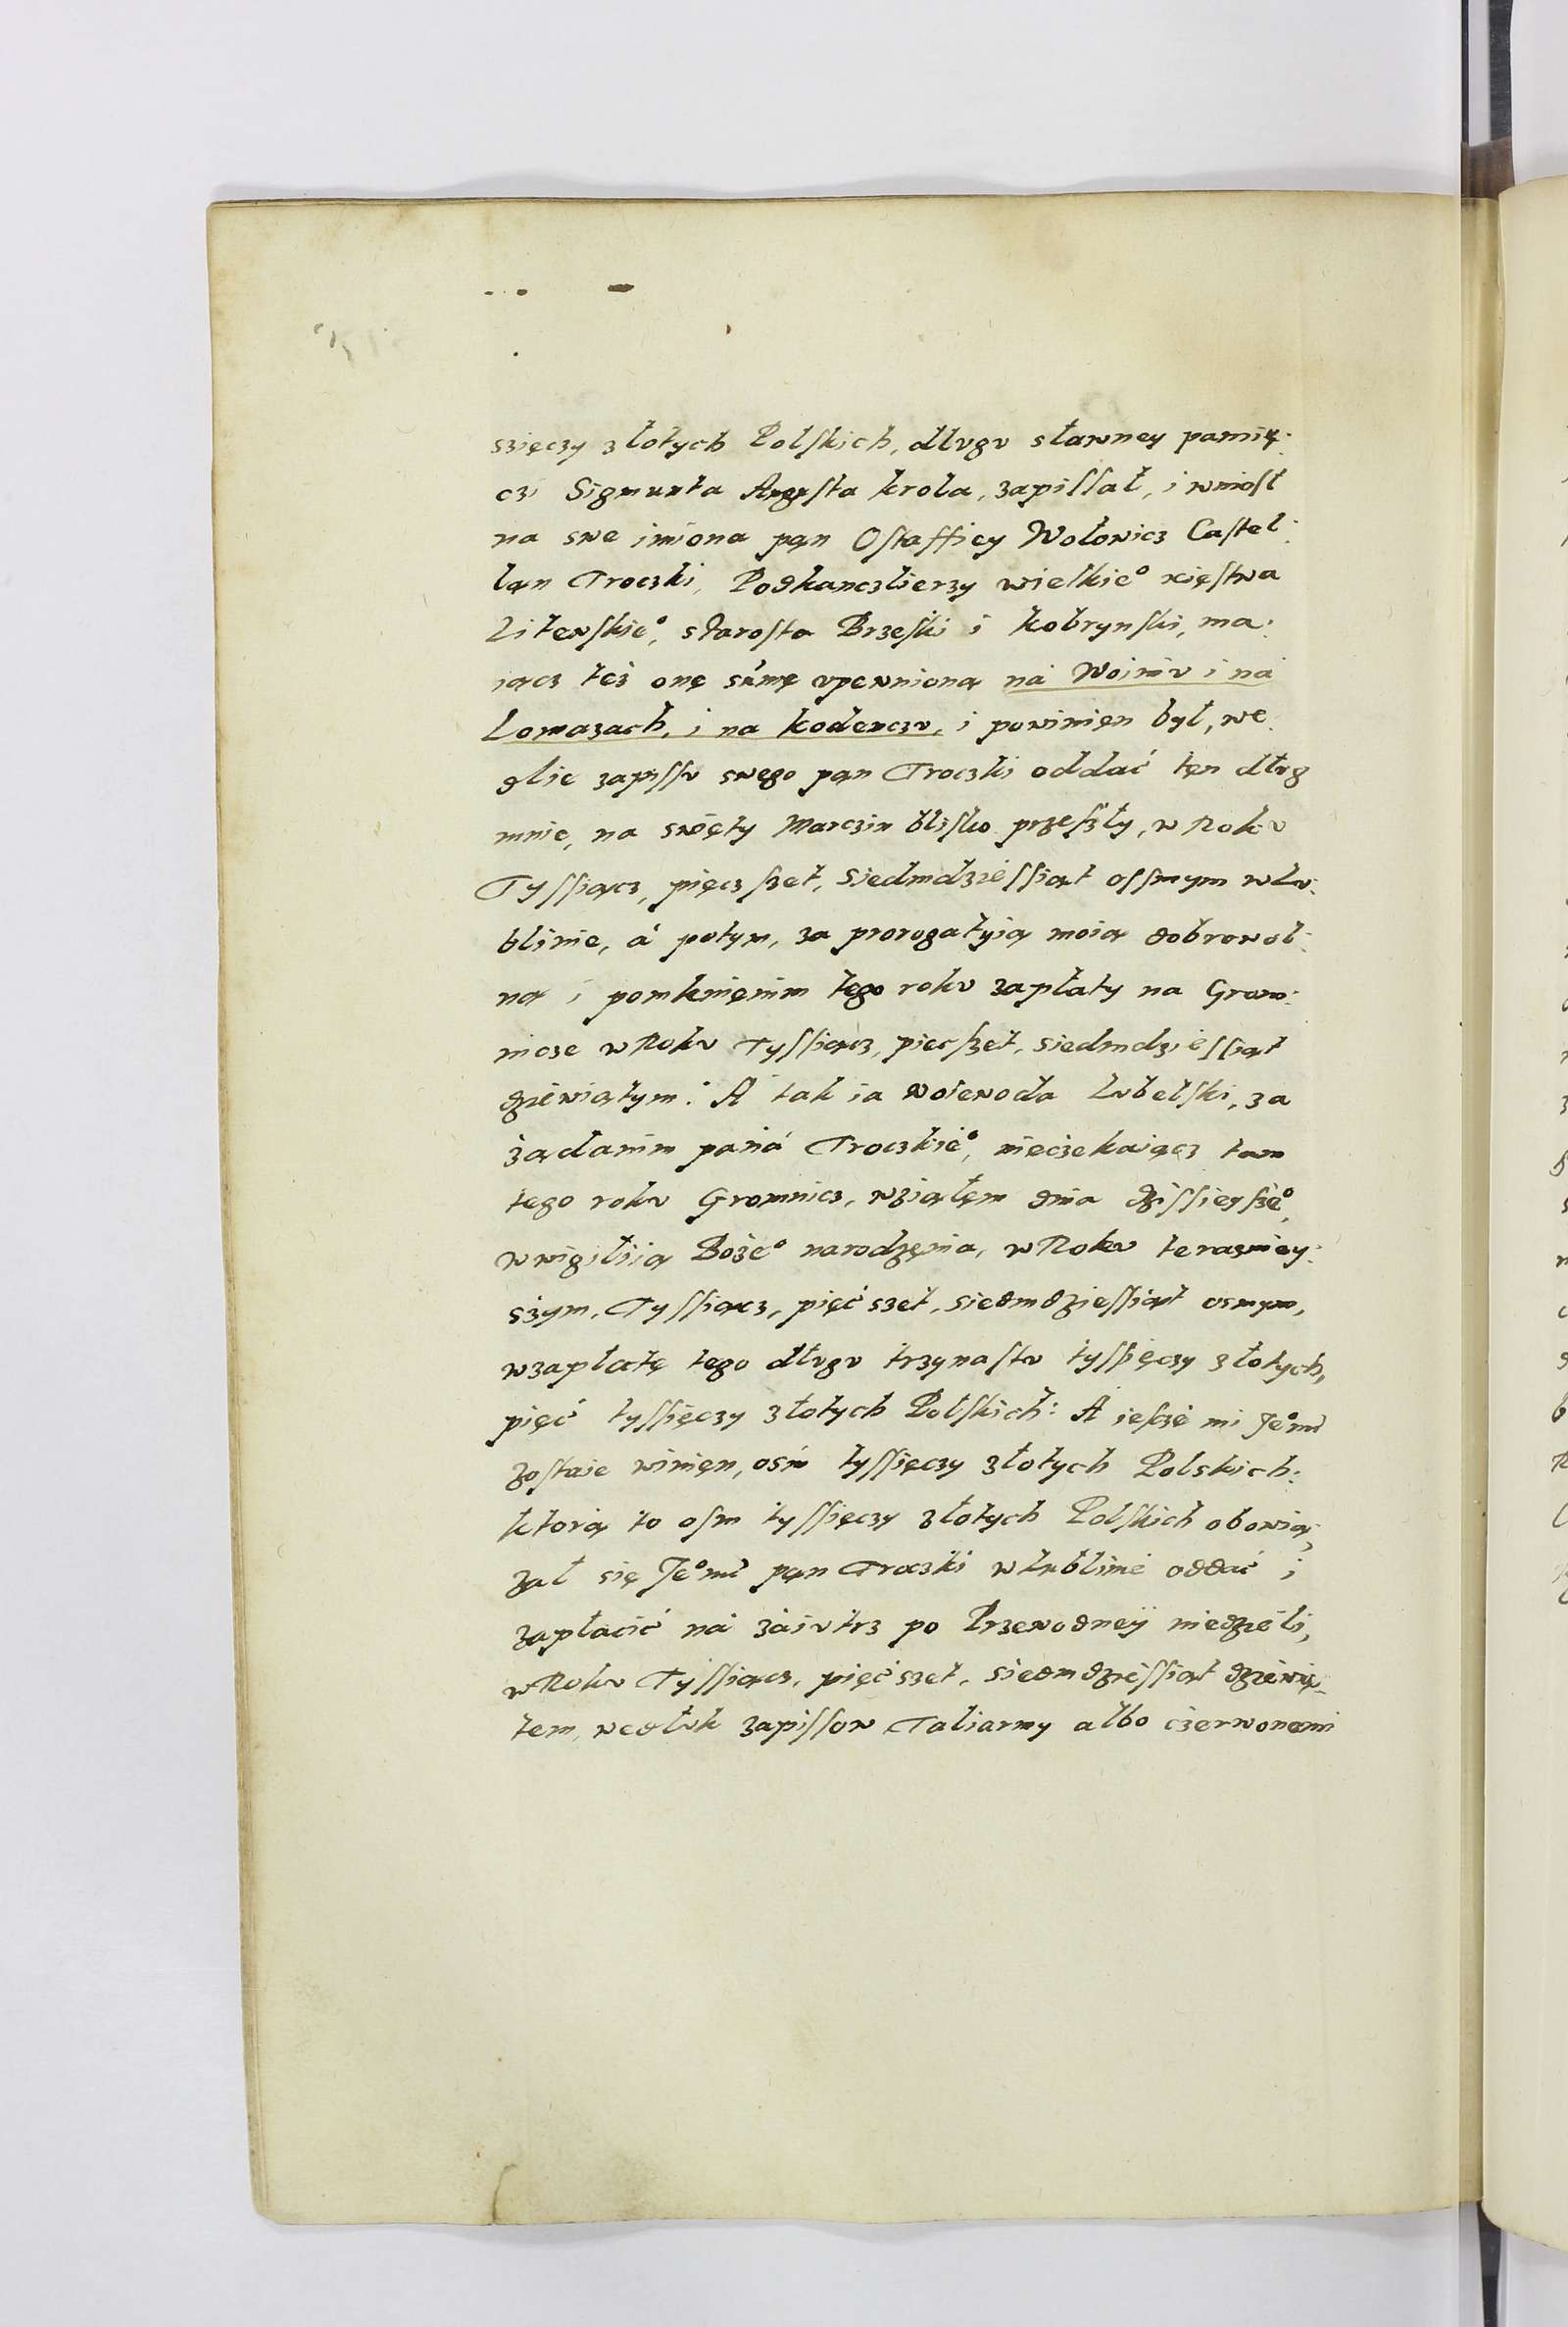 szięczy złotych Polſkich, dlvgv sławney pamię:
czi Sigmunta Avguſta krola, zapiſſał, i wnioſł
na swe imiona pąn Oſtafficy Wołowicz Caſtel:
lan Troczki, Podkanczlierzy wielkie° xięſtwa
Litewſkie°, staroſta Brzeſki i kobrynſki, ma:
iącz też onę súmę vpewnioną ná Woiniv i ná
Lomazach, i na kodenczv, i powinięn był, we
glie zapiſſv swego pąn Troczki oddać tęn dłvg
mnie, na swięty Marczin bliſko przeſzły, w Rokv
Tyſſiącz, pięczſzet, Siedmdzieſſiąt oſſmym w Lv:
blinie, á potym, za prorogatyią moią dobrowol:
ną i pomknięnim tego rokv zapłaty na Grom:
nicze w Rokv Tyſſiącz, piecſzet, siedmdzieſſiąt
dziewiątym: A tak ia woiewoda Lvbelſki, za
żądanim paná Troczkie°, nieczekaiącz tam
tego rokv Gromnicz, wziąłęm dnia dziſſieyſze°,
w wigiliią Boże° narodzęnia, w Rokv terazniey:
szym, Tyſſiącz, pięćszet, siedmdzieſſiąt osmym,
w zapłatę tego dłvgv trzynaſtv tyſſięczy złotych,
pięć tyſſięczy złotych Polſkich: A ieſzcze mi Je°mć
zoſtaie winięn, ośm tyſſięczy złotych Polskich:
ktorą to oſm tyſſięczy złotych Polſkich obowią,
zał się Je°mć pąn Troczki w Lublinie oddać i
zapłacić ná záivtrz po Przewodney niedzieli,
w Rokv Tyſſiącz, pięćszet, siedmdzieſſiąt dziewią,
tem, wedłvk zapiſſow Taliarmy albo czerwonemi